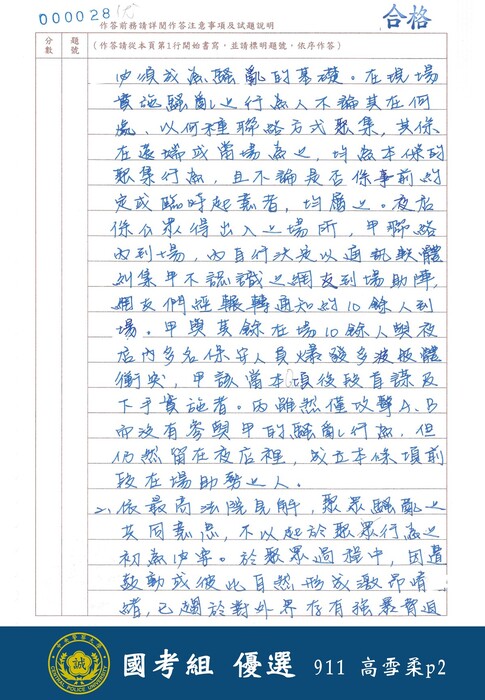 000028
合格
作答前務請詳閱作答注意事項及試題說明
分數
題號
(作答請從本頁第1行開始書寫,並請標明題號,依序作答)
必須成為騷亂的基礎。在現場
實施騷亂之行為人不論其在何
處、以何種聯絡方式聚集,其係
在遠端或當場為之,均為本條的
聚集行為,且不論是否係事前約
定或臨時起意者,均屬之。夜店
係公眾得出入之場所,甲聯絡
丙到場,丙自行決定以通訊軟體
糾集甲不認識之網友到場助陣,
網友們經輾轉通知約10餘人到
場。甲與其餘在場10餘人與夜
店內多名保安人員爆發多波肢體
衝突,甲該當本項後段首謀及
下手實施者。丙雖然僅攻擊A、B
而沒有參與甲的騷亂行為,但
仍然留在夜店裡,成立本條項前
段在場助勢之人。
二、依最高法院見解,聚眾騷亂之
共同意思,不以起於聚眾行為之
初為必要。於聚眾過程中,因遭
鼓動或彼此自然形成激昂情
緒,已趨於對外界存有強暴脅迫
中央警察大學
誠
CENTRAL POLICE UNIVERSITY
國考組 優選 911 高雪柔p2